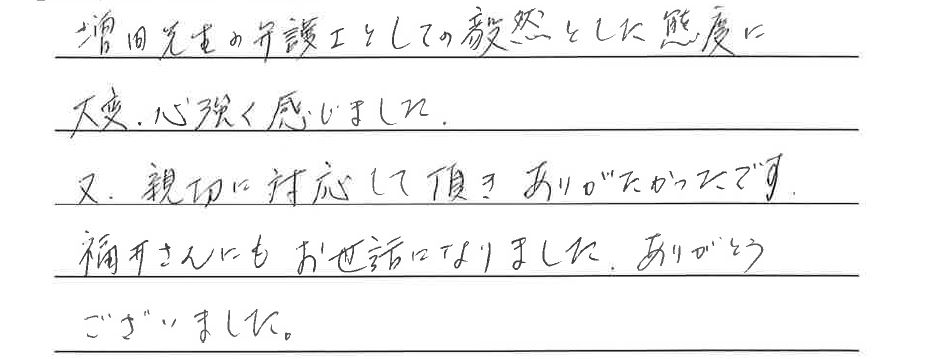 増田先生の弁護士としての毅然とした態度に
大変、心強く感じました。
又、親切に対応して頂きありがたかったです。
福井さんにもお世話になりました。ありがとう
ございました。